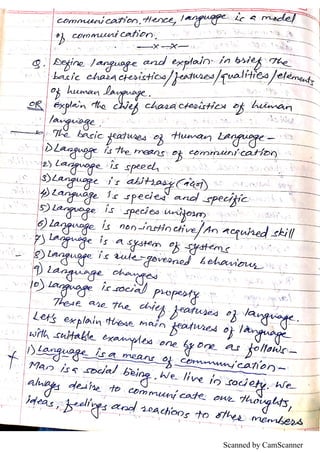 communication. Hence, language is a model
of communication.
—x—x—
Q. Define language and explain in brief the
basic characteristics/features/qualities/elements
of human language.
OR Explain the chief characteristics of human
language.
The basic features of Human Language -
1) Language is the means of communication
2) Language is speech
3) Language is abitrary
4) Language is species and specific
5) Language is species uniform
6) Language is non-instinctive/An acquired skill
7) Language is a system of systems
8) Language is rule-governed behaviour
9) Language changes
10) Language is social property
These are the chief features of language.
Let's explain these main features of language
with suitable examples one by one as follows-
1) Language is a means of communication-
Man is a social being. We live in society. We
always desire to communicate our thoughts,
ideas, feelings and reactions to other members
Scanned by CamScanner